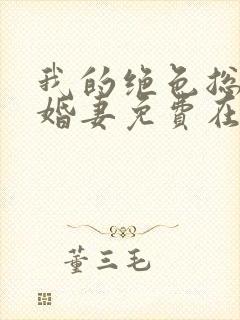 我的绝色总
婚妻免费在
董三毛